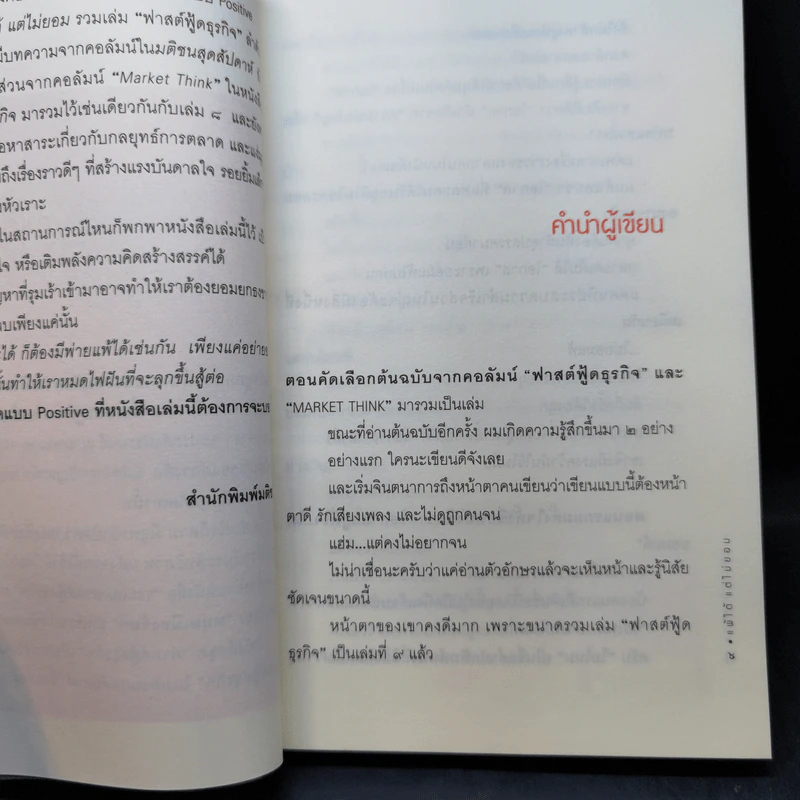 แบบ Positive
แต่ไม่ยอม รวมเล่ม “ฟาสต์ฟู้ดธุรกิจ”
บทความจากคอลัมน์ในมติชนสุดสัปดาห์
ส่วนจากคอลัมน์ “Market Think” ในหนังสื
กิจ มารวมไว้เช่นเดียวกันกับเล่ม ๘ และยัง
หาสาระเกี่ยวกับกลยุทธ์การตลาด และ
ถึงเรื่องราวดีๆ ที่สร้างแรงบันดาลใจ รอยยิ้ม
หัวเราะ
ในสถานการณ์ไหนก็พกพาหนังสือเล่มนี้ไว้
ใจ หรือเติมพลังความคิดสร้างสรรค์ได้
ญหาที่รุมเร้าเข้ามาอาจทำให้เราต้องยอมยกธง
บเพียงแค่นั้น
ได้ ก็ต้องมีพ่ายแพ้ได้เช่นกัน เพียงแค่อย่า
นทำให้เราหมดไฟฝันที่จะลุกขึ้นสู้ต่อ
แบบ Positive ที่หนังสือเล่มนี้ต้องการจะ
สำนักพิมพ์มติช
คำนำผู้เขียน
ตอนคัดเลือกต้นฉบับจากคอลัมน์ “ฟาสต์ฟู้ดธุรกิจ” และ
“MARKET THINK” มารวมเป็นเล่ม
ขณะที่อ่านต้นฉบับอีกครั้ง ผมเกิดความรู้สึกขึ้นมา ๒ อย่าง
อย่างแรก ใครนะเขียนดีจังเลย
และเริ่มจินตนาการถึงหน้าตาคนเขียนว่าเขียนแบบนี้ต้องหน้า
ตาดี รักเสียงเพลง และไม่ดูถูกคนจน
แฮ่ม...แต่คงไม่อยากจน
ไม่น่าเชื่อนะครับว่าแค่อ่านตัวอักษรแล้วจะเห็นหน้าและรู้นิสัย
ชัดเจนขนาดนี้
หน้าตาของเขาคงดีมาก เพราะขนาดรวมเล่ม “ฟาสต์ฟู้ด
ธุรกิจ” เป็นเล่มที่ ๙ แล้ว
๙ • แพ้ได้ แต่ไม่ยอม